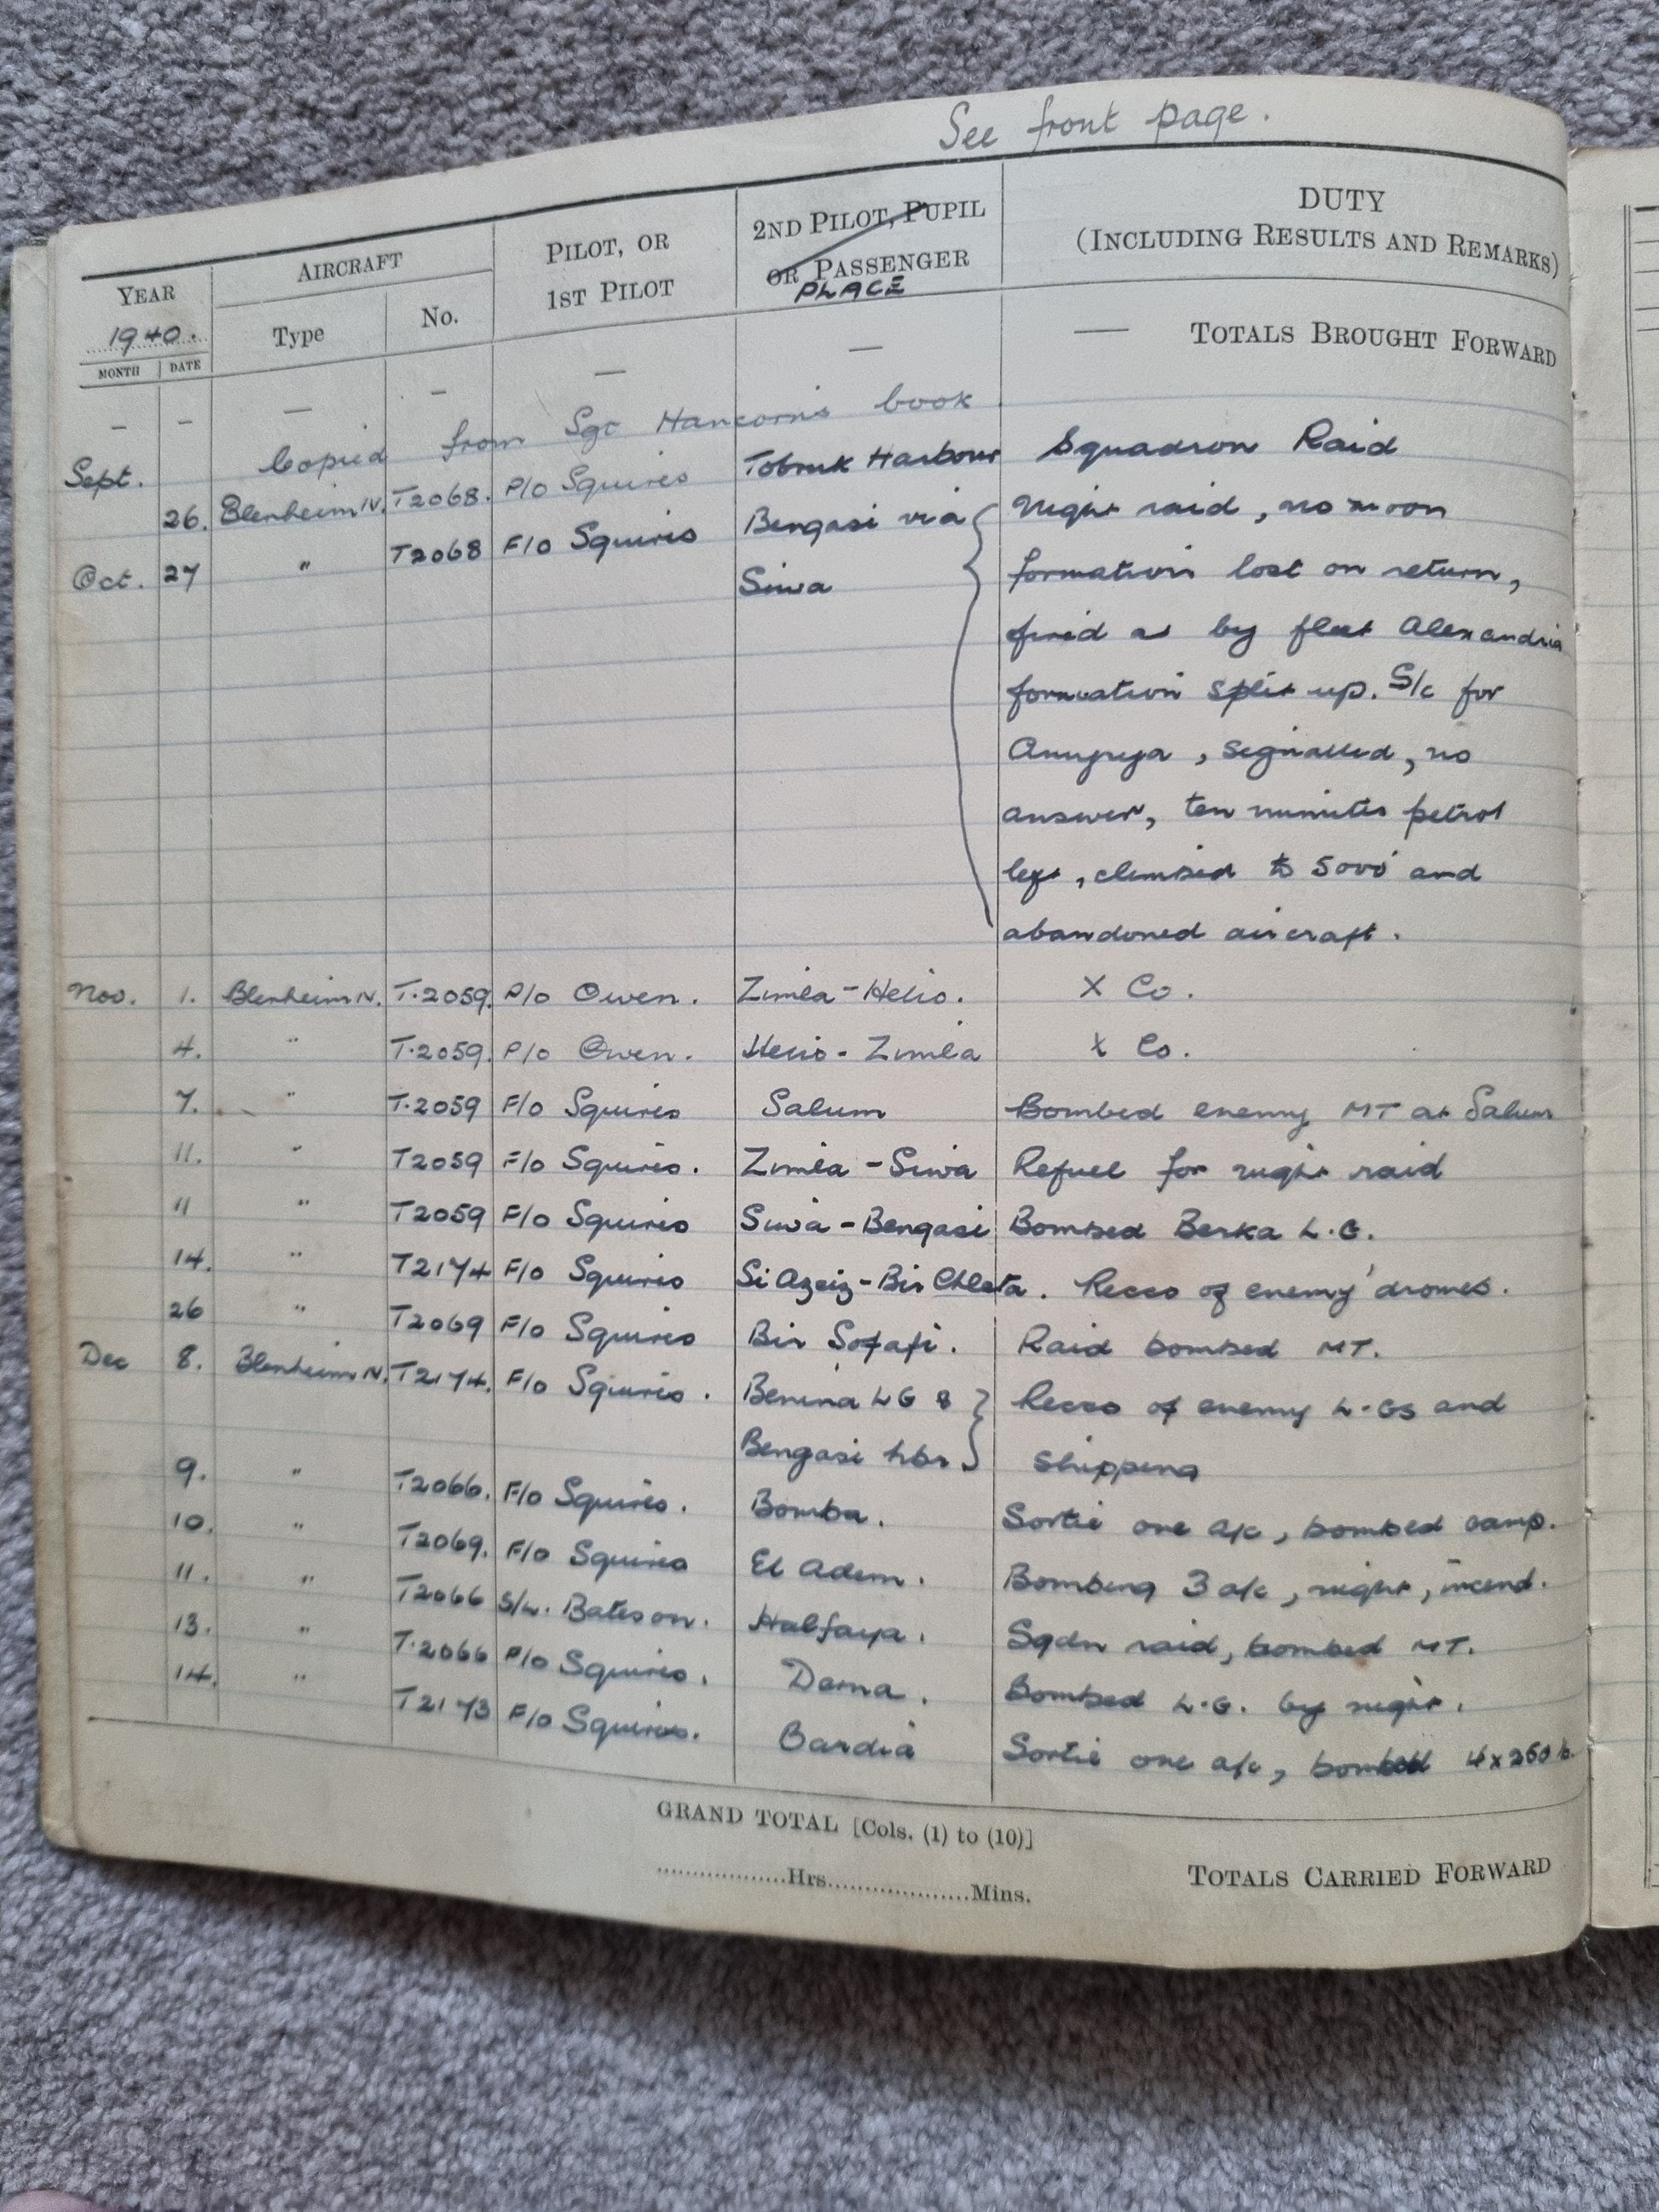 See front page.
YEAR AIRCRAFT PILOT, OR 2ND PILOT, PUPIL DUTY
1940. Type No. 1ST PILOT OR PASSENGER (INCLUDING RESULTS AND REMARKS)
MONTH DATE PLACE
— — — — — — — TOTALS BROUGHT FORWARD
Copied from Sgt Hancorn's book
Sept. 26. Blenheim IV. T2068. P/O Squires Tobruk Harbour Squadron Raid
Oct. 27 " T2068 F/O Squires Bengasi via Night raid, no moon
Siwa formation lost on return,
fired at by fleet Alexandria
formation split up. S/c for
, signalled, no
answer, ten minutes petrol
left, climbed to 5000' and
abandoned aircraft.
Nov. 1. Blenheim IV. T.2059. P/O Owen. Zimla - Helio. X Co.
4. " T.2059. P/O Owen. Helio - Zimla X Co.
7. " T.2059 F/O Squires Salum Bombed enemy MT at Salum
11. " T2059 F/O Squires. Zimla - Siwa Refuel for night raid
11 " T2059 F/O Squires Siwa - Bengasi Bombed Berka L.G.
14. " T2174 F/O Squires Si Azeiz - Bir Chleta. Recco of enemy 'dromes.
26 " T2069 F/O Squires Bir Sofafi. Raid bombed MT.
Dec 8. Blenheim IV. T2174. F/O Squires. Benina LG & Recco of enemy L.Gs and
Bengasi hbr shipping
9. " T2066. F/O Squires. Bomba. Sortie one a/c, bombed camp.
10. " T2069. F/O Squires El Adem. Bombing 3 a/c, night, incend.
11. " T2066 S/L. Bateson. Halfaya. Sqdn raid, bombed MT.
13. " T.2066 P/O Squires. Derna. Bombed L.G. by night.
14. " T2173 F/O Squires. Bardia Sortie one a/c, bombed 4 x 250 lb.
GRAND TOTAL [Cols. (1) to (10)]
................Hrs....................Mins. TOTALS CARRIED FORWARD